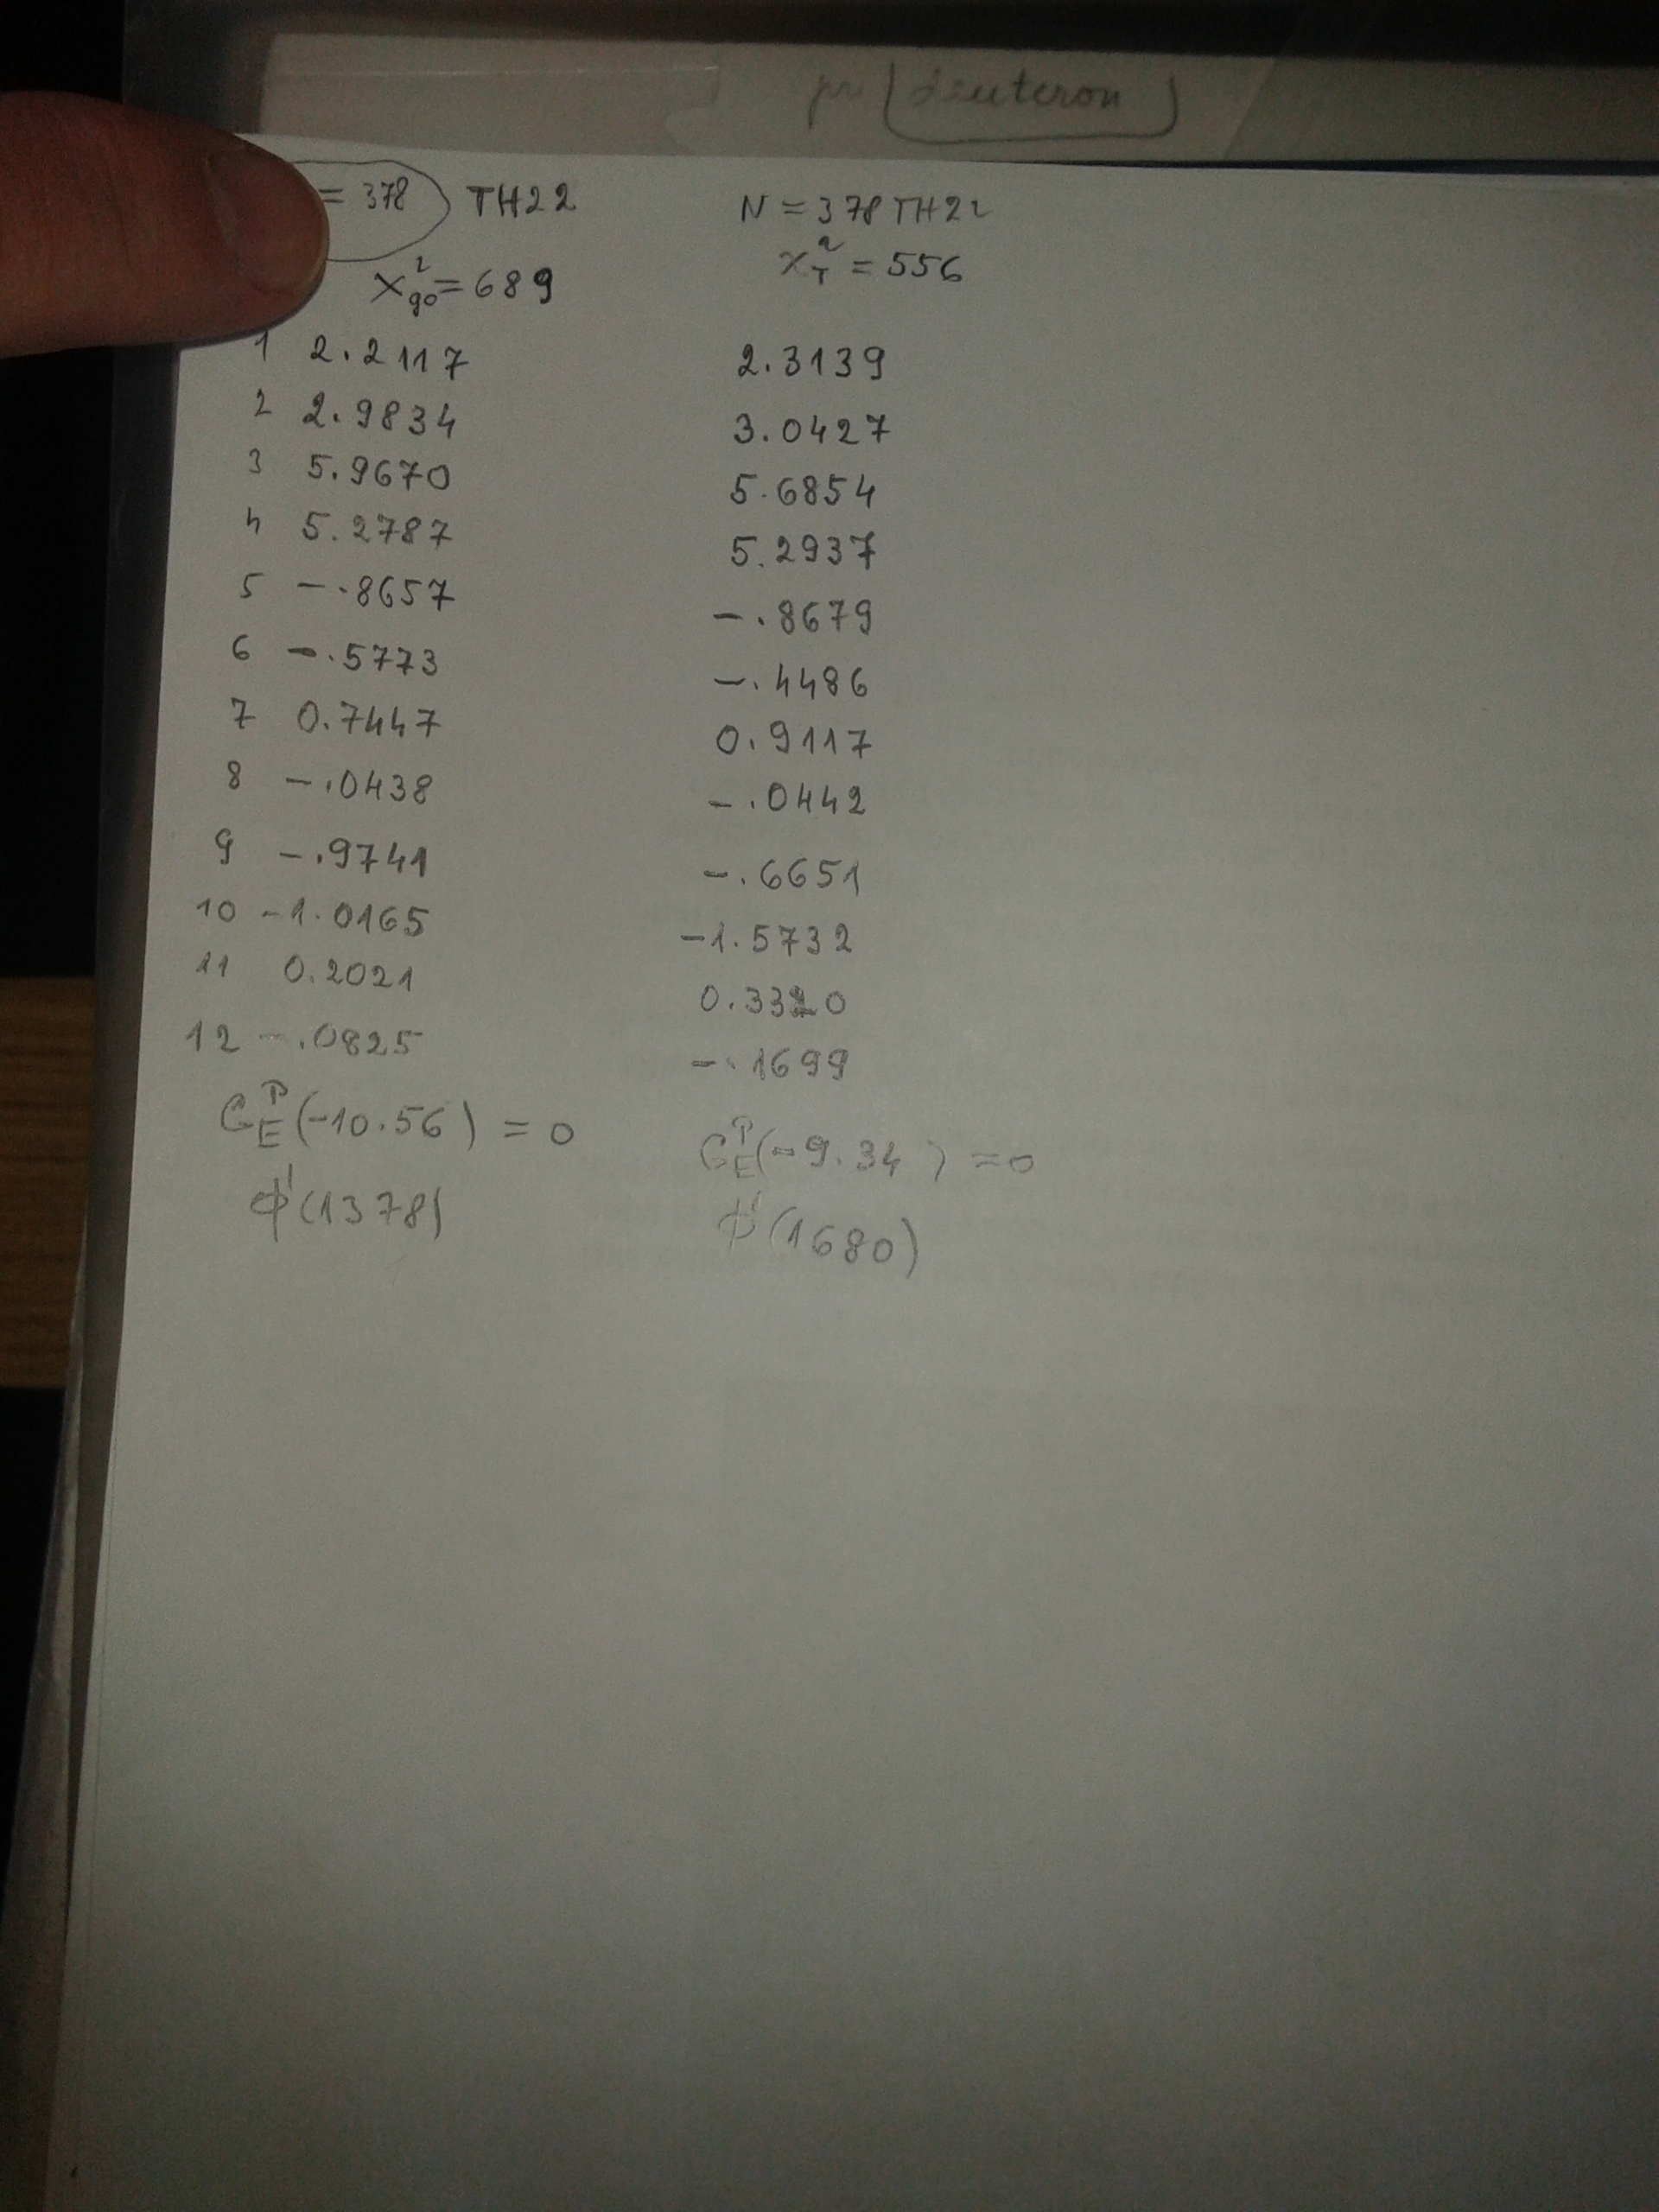 (deuteron)
= 378 TH22
χ²go = 689
1 2.2117
2 2.9834
3 5.9670
4 5.2787
5 -.8657
6 -.5773
7 0.7447
8 -.0438
9 -.9741
10 -1.0165
11 0.2021
12 -.0825
G_E^P(-10.56) = 0
ϕ'(1378)
N = 378 TH22
χ²T = 556
2.3139
3.0427
5.6854
5.2937
-.8679
-.4486
0.9117
-.0442
-.6651
-1.5732
0.3320
-.1699
G_E^P(-9.34) = 0
ϕ'(1680)